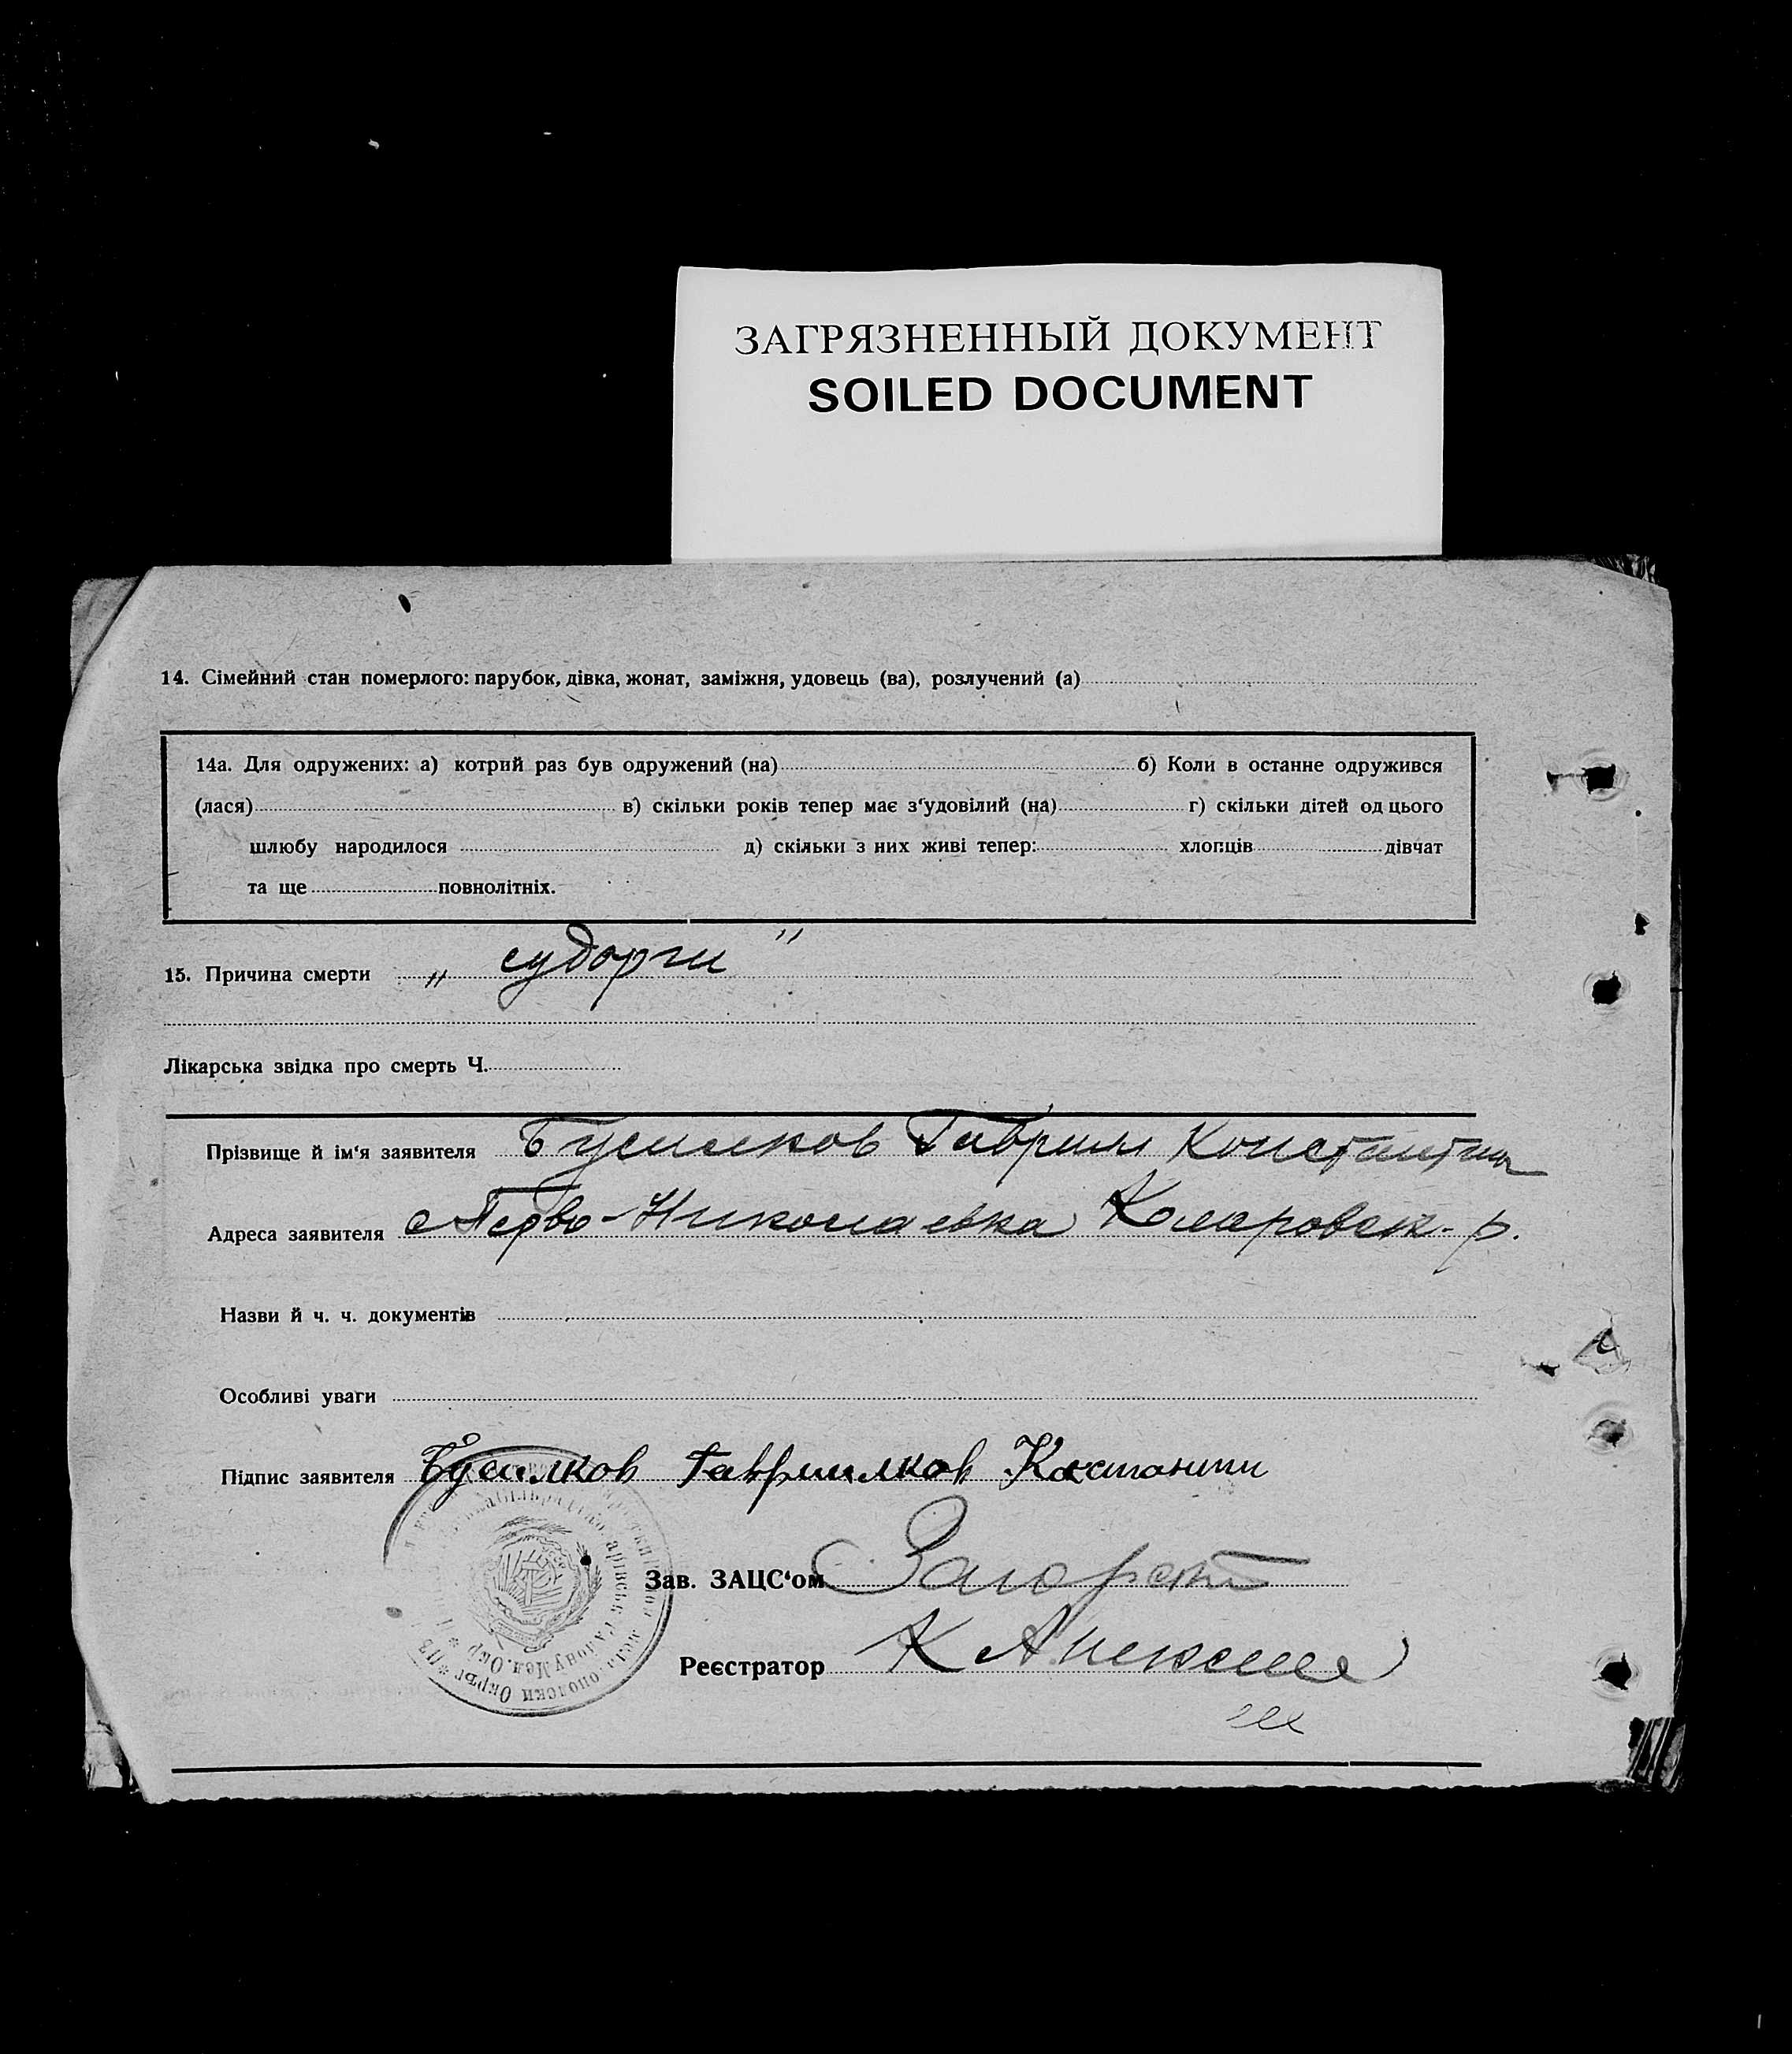 ЗАГРЯЗНЕННЫЙ ДОКУМЕНТ
SOILED DOCUMENT
14. Сімейний стан померлого: парубок, дівка, жонат, заміжня, удовець (ва), розлучений (а)
14а. Для одружених: а) котрий раз був одружений (на) б) Коли в останне одружився
(лася) в) скільки років тепер має з‘удовілий (на) г) скільки дітей од цього
шлюбу народилося д) скільки з них живі тепер: хлопців дівчат
та ще повнолітніх.
15. Причина смерти „ судорги "
Лікарська звідка про смерть Ч.
Прізвище й ім‘я заявителя Гавриил Константин
Адреса заявителя с Перво-Николаевка Коларовск. р.
Назви й ч. ч. документів
Особливі уваги
Підпис заявителя
Зав. ЗАЦС‘ом
Реєстратор К